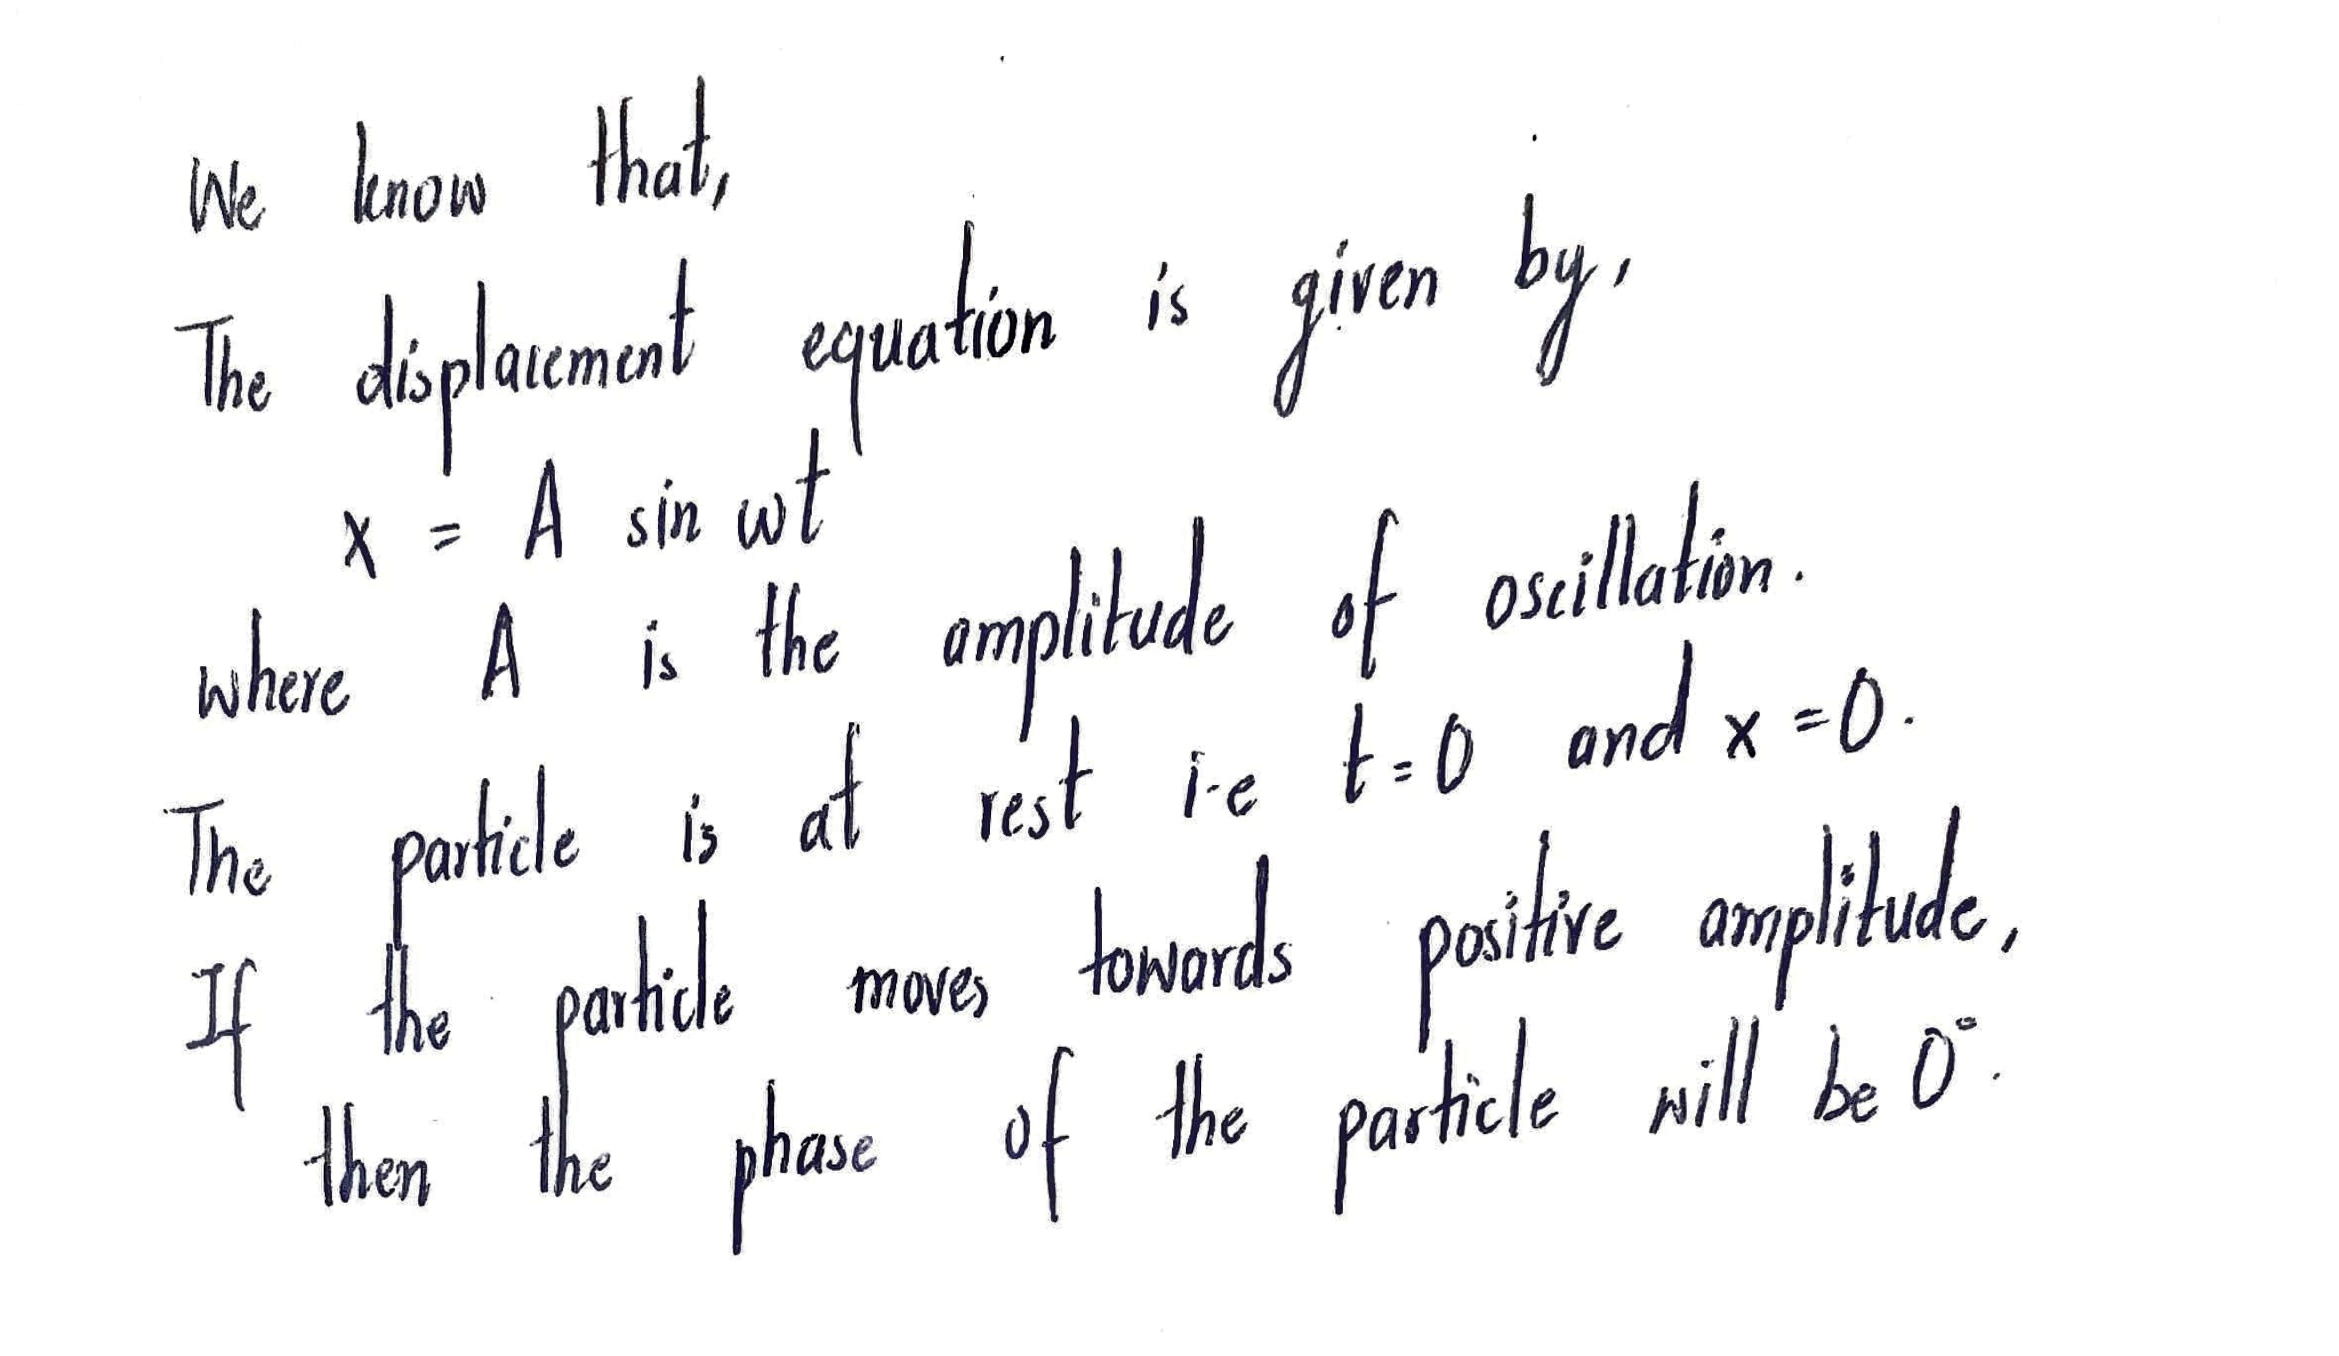 We know that,
The displacement equation is given by,
x = A sin wt
where A is the amplitude of oscillation.
The particle is at rest i-e t=0 and x=0.
If the particle moves towards positive amplitude,
then the phase of the particle will be 0°.